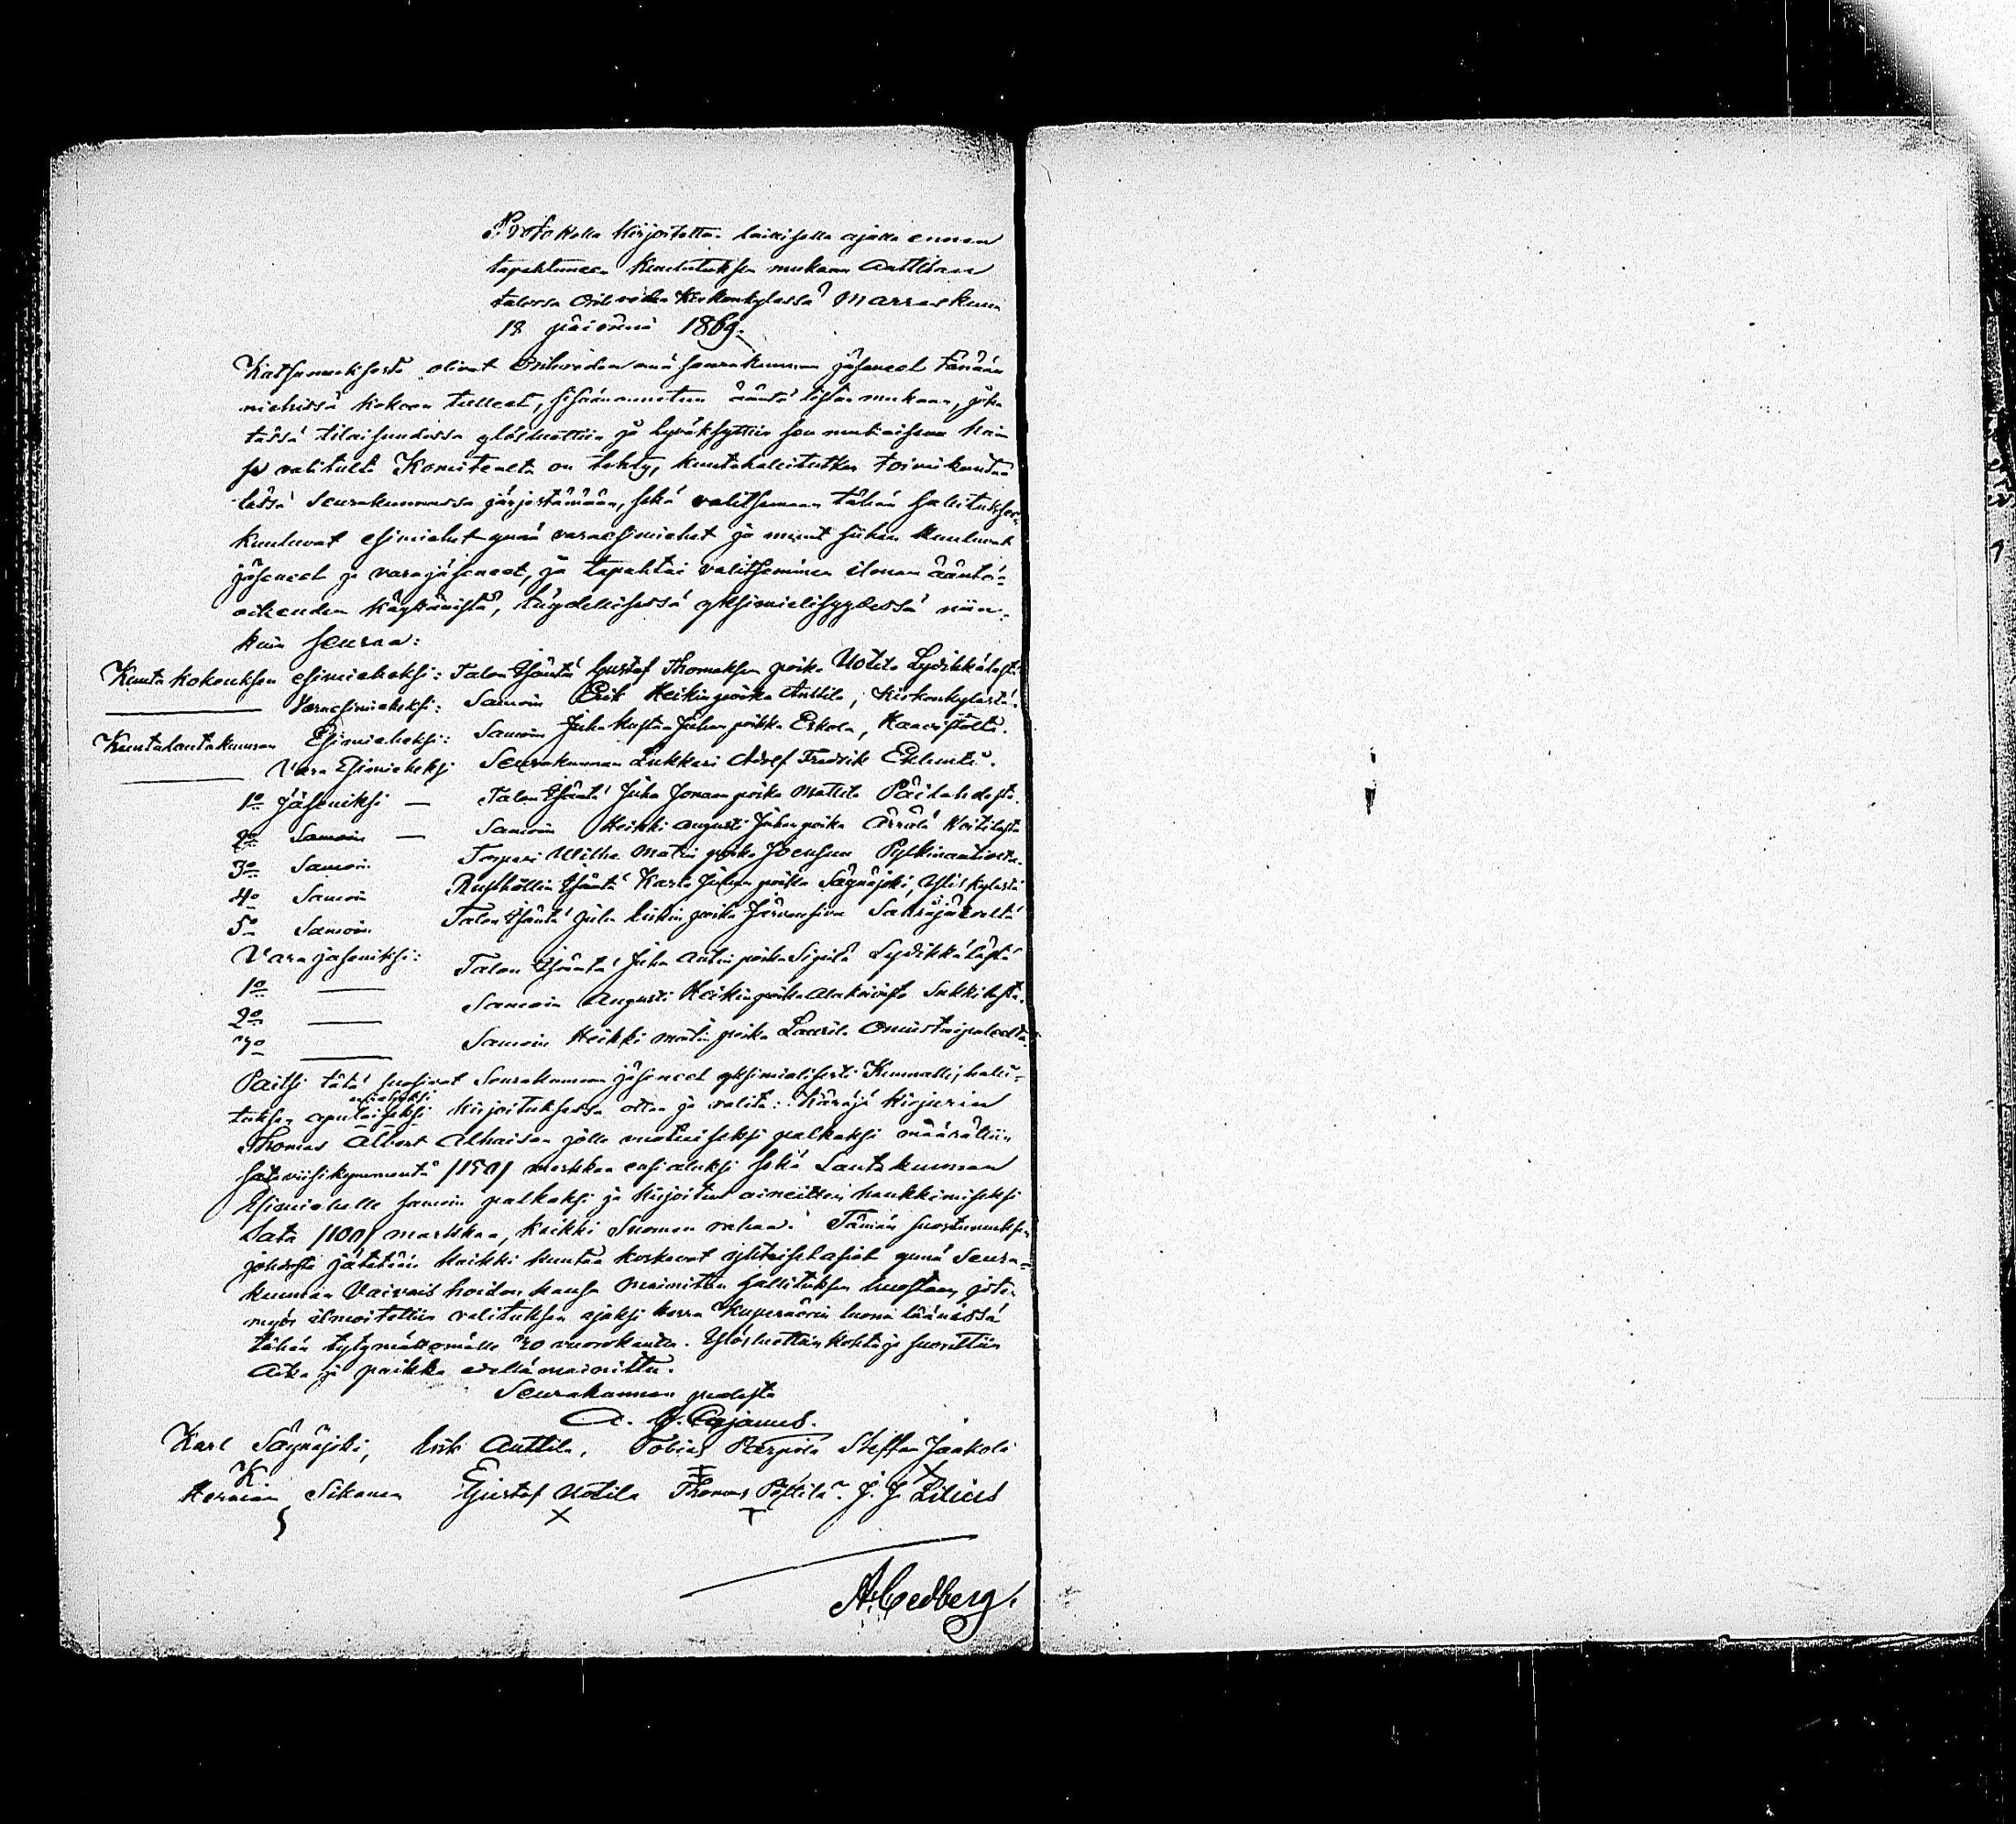 Protokolla kirjoitettu laillisella ajalla ennen
tapahtuneen kuulutuksen mukaan Anttilan
talossa Oriveden Kirkonkylässä Marraskuun
18 päivänä 1869.
Kutsumuksesta olivat Oriveden emä seurakunnan jäsenet tänään
miehissä kokoon tulleet, sisäänannetun ääntö listan mukaan, joka
tässä tilaisuudessa ylösluettiin ja hyväksyttiin sen mukaisena kuin
se valitulta Komitealta on tehty, kuntahallitukse toimikuntaa
tässä Seurakunnassa järjestämään, sekä valitsemaan tähän hallitukseen
kuuluvat esimiehet ynnä varaesimiehet ja muut siihen kuuluvat
jäsenet ja varajäsenet, ja tapahtui valitseminen ilman ääntö-
oikeuden käyttämistä, täydellisessä yksimielisyydessä niin-
kuin seuraa:
Kunta kokouksen esimieheksi: Talon Isäntä Gustaf Thomaksen poika Uotila Lyytikkälästä
Varaesimieheksi: Samoin Erik Heikin poika Anttila, Kirkonkylästä.
Kuntalautakunnan Esimieheksi: Samoin Juha Kustaa Juhan poika Eskola, Naavistolta.
Vara Esimieheksi Seurakunnan Lukkari Adolf Fredrik
1o Jäseniksi — Talon Isäntä Juha Jonaan poika Mattila Päilahdesta.
2o Samoin — Samoin Heikki Augusti Juhan poika Ärrälä Koitilasta
3o Samoin Torpari Wilhe Matin poika Joensuu
4o Samoin Rusthollin Isäntä Karle Juhan poika Säynäjoki, Yliskylästä
5o Samoin Talon Isäntä Juha Erikin poika Järvensivu Säkäjärveltä
Vara jäseniksi:
1o — Talon Isäntä Juha Antin poika Sipilä Lyytikkälästä
2o — Samoin Augusti Heikin poika Alakoivisto Sukkilasta.
3o — Samoin Heikki Matin poika Laurila Onnistaipaleelta
Paitsi tätä suosivat Seurakunnan jäsenet yksimielisesti Kunnallishalli-
tuksen apulaiseksi kirjoituksessa ottaa ja valita: Käräjä kirjurin
Thomas Albert Alhaisen jolle vuotuiseksi palkaksi määrättiin
sataviisikymmentä /150/ markkaa ensialuksi sekä Lautakunnan
Esimiehelle samoin palkaksi ja kirjoitus aineitten hankkimiseksi
Sata /100/ markkaa, kaikki Suomen rahaa. Tämän suostumuksen
johdosta jätetään kaikki kuntaa koskevat yhteiset asiat ynnä Seura-
kunnan Vaivais hoidon kanssa mainitun hallituksen huostaan, joten
myös ilmoitettiin valituksen ajaksi herra Kuvernöörin luona läänissä
tähän tytymättömälle 30 vuorokautta. Ylösluettiin kohta ja suosittiin
Aika ja paikka edellä mainittu.
Seurakunnan puolesta
A. G. Cajanus.
Karl Säynäjoki, Erik Anttila, Tobias Perpola Steffan Jaakola
Herman Sikanen Gustaf Uotila Thomas Pohtila. J. J. Lilius
A. Cedberg.